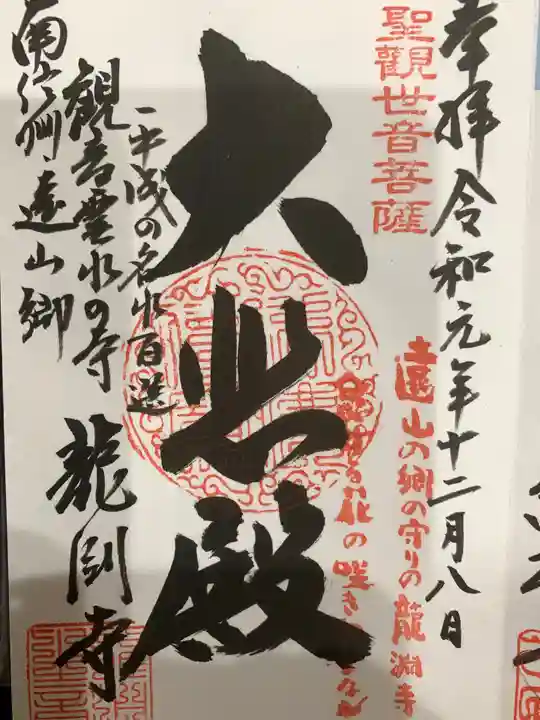 奉拝 令和元年十二月八日
聖觀世音菩薩
遠山の郷の守りの龍淵寺
花の咲き
大悲殿
平成の名水百選
観音霊水の寺 龍渕寺
南信州遠山郷